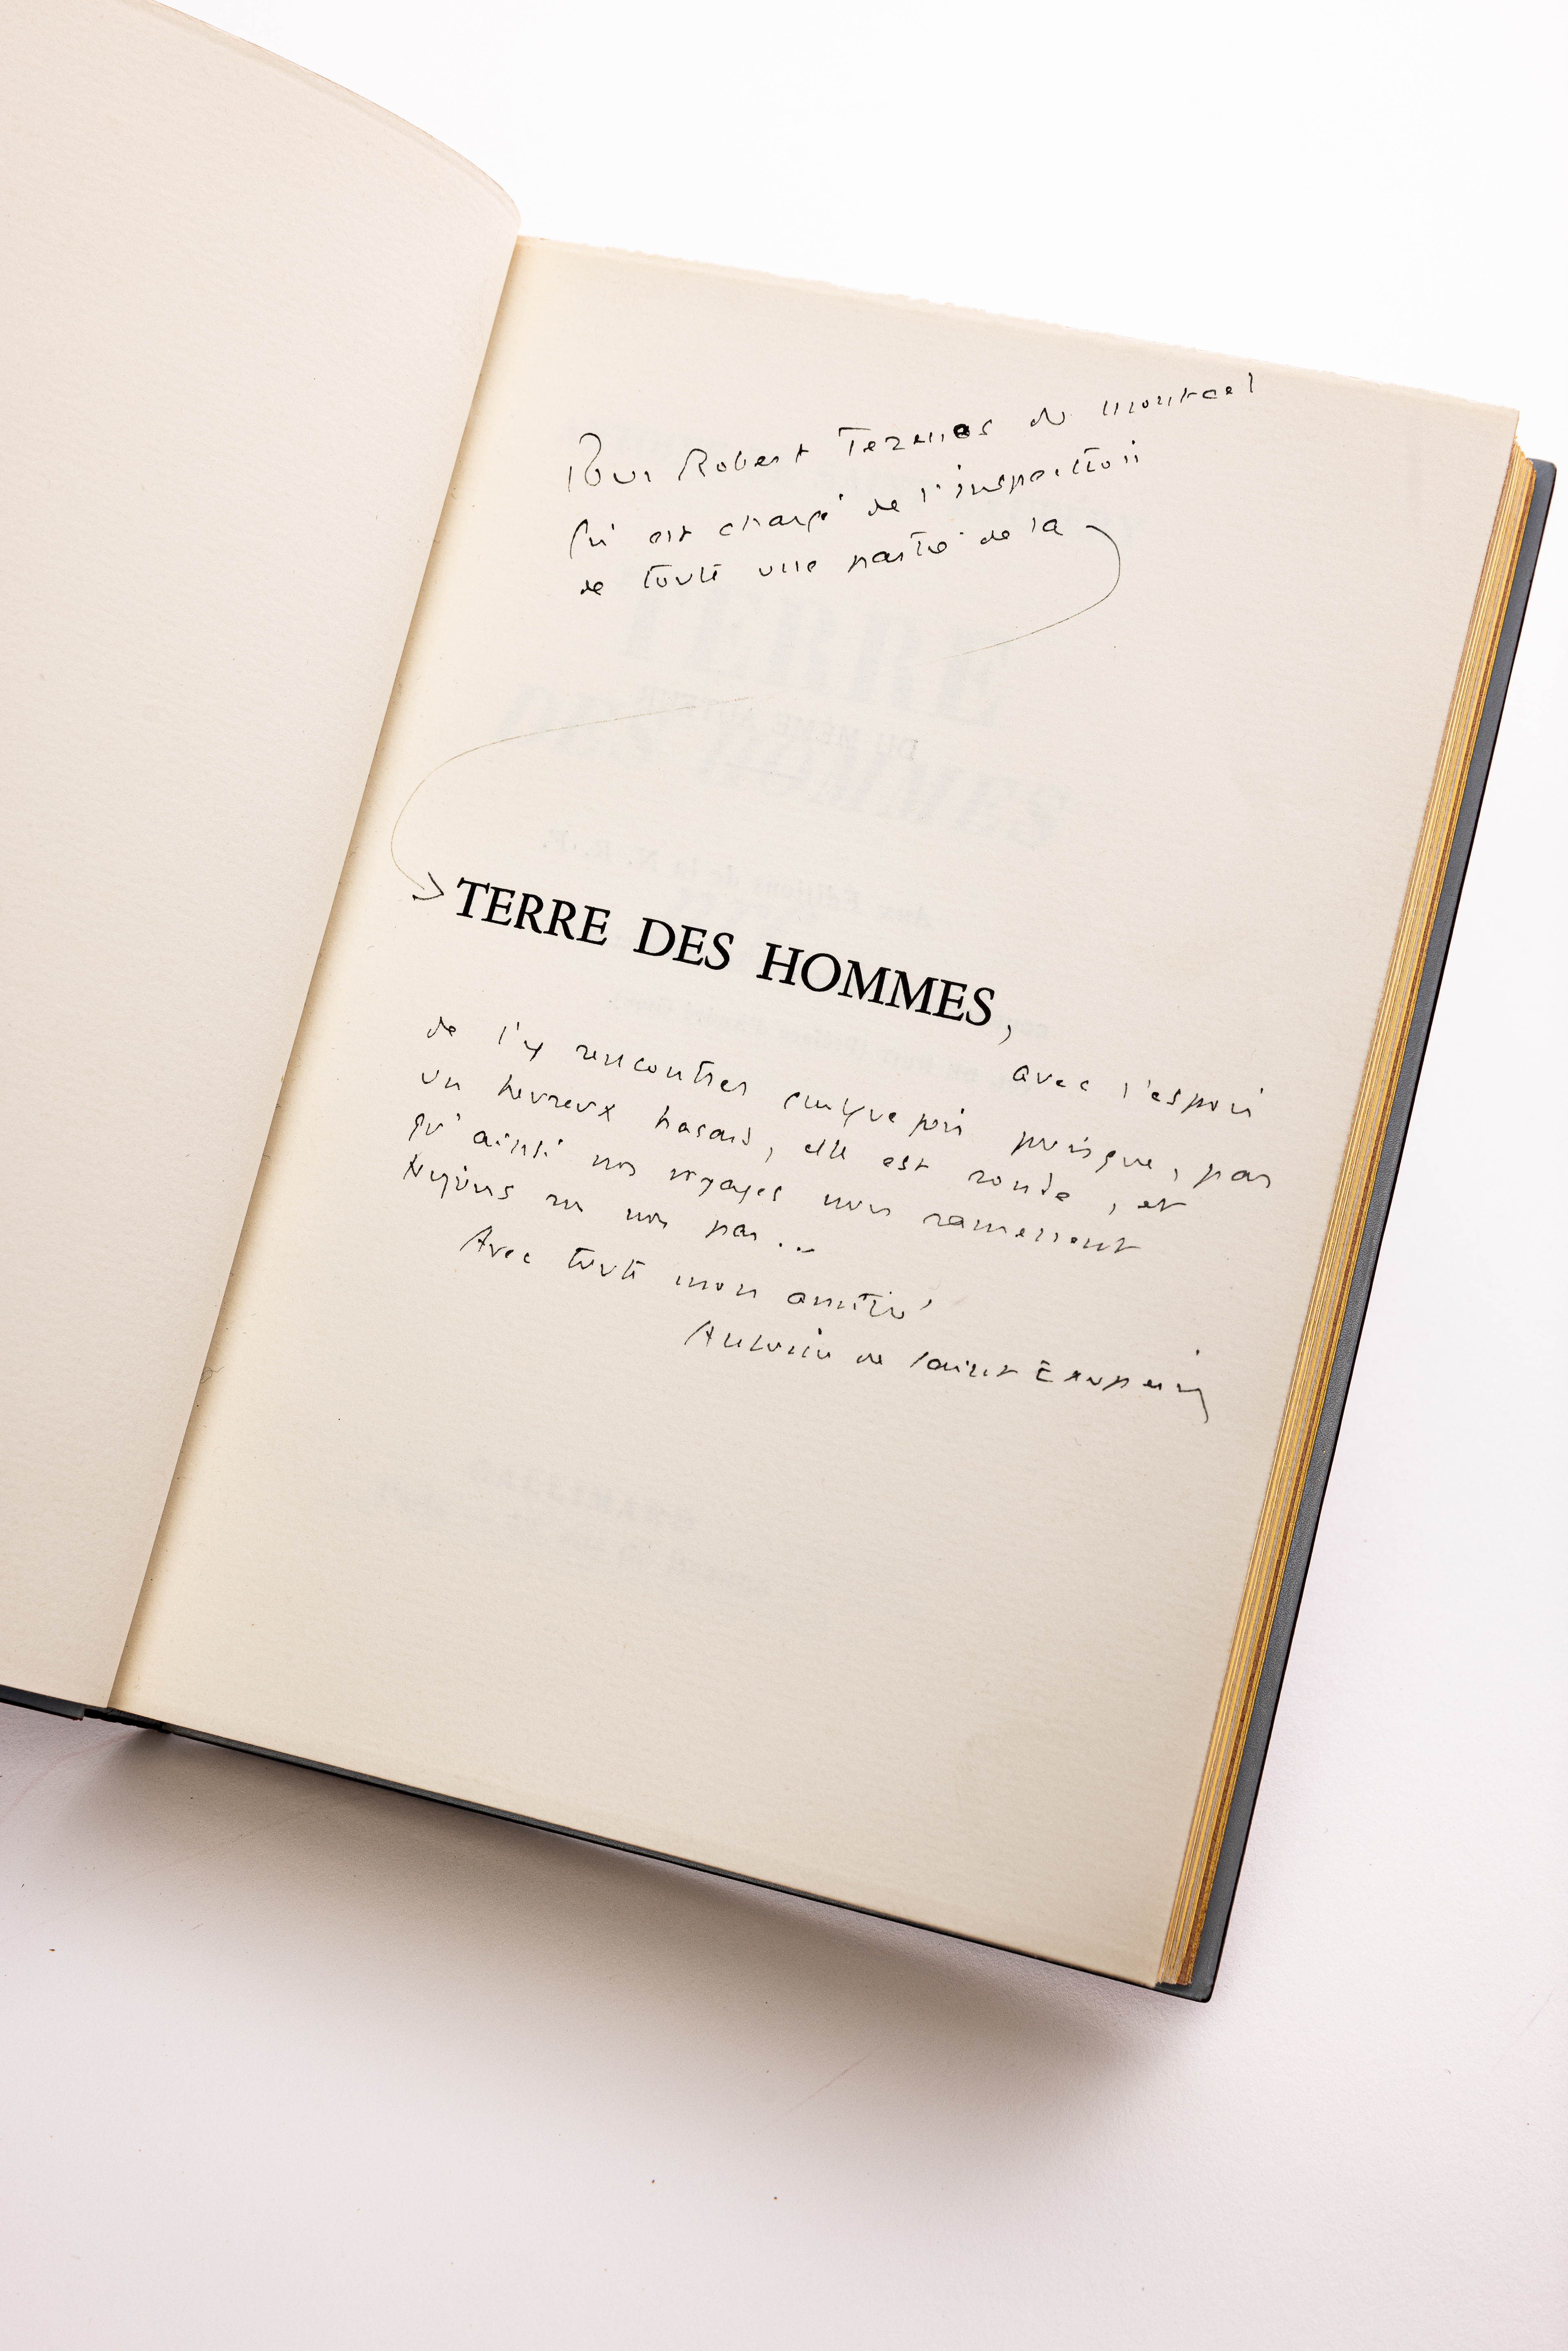 Pour Robert Tezenas du Montcel
qui est chargé de l'inspection
de toute une partie de la
TERRE DES HOMMES,
avec l'espoir
de l'y rencontrer quelque fois puisque, par
un heureux hasard, elle est ronde, et
qu'ainsi nos voyages nous ramènent
toujours sur nos pas...
Avec toute mon amitié
Antoine de Saint Exupéry